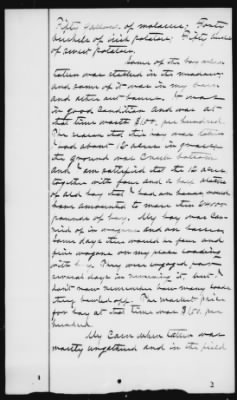 Fifty gallons of molasses; Forty
bushels of irish potatoes; Fifty bushels
of sweet potatoes.
Some of the hay when
taken was stacked in the meadow,
and some of it was in my barn
and
in good condition and was at
that time worth $1.00. per hundred
The season that this hay was taken
I had about 12 acres in grass
the ground was Creek bottom
and I am satisfied that the 12 acres
together with
of old hay that I had on hand would
have amounted to more than
pounds of hay. My hay was
in wagons and on horses
some days there would be four and
five wagons on my place loading
with hay. They were engaged
several days in removing it but I
don't now remember how many loads
they hauled off. The market price
for hay at the time was $1.00. per
hundred.
My Corn when taken was
mostly ungathered and in the field
1
2